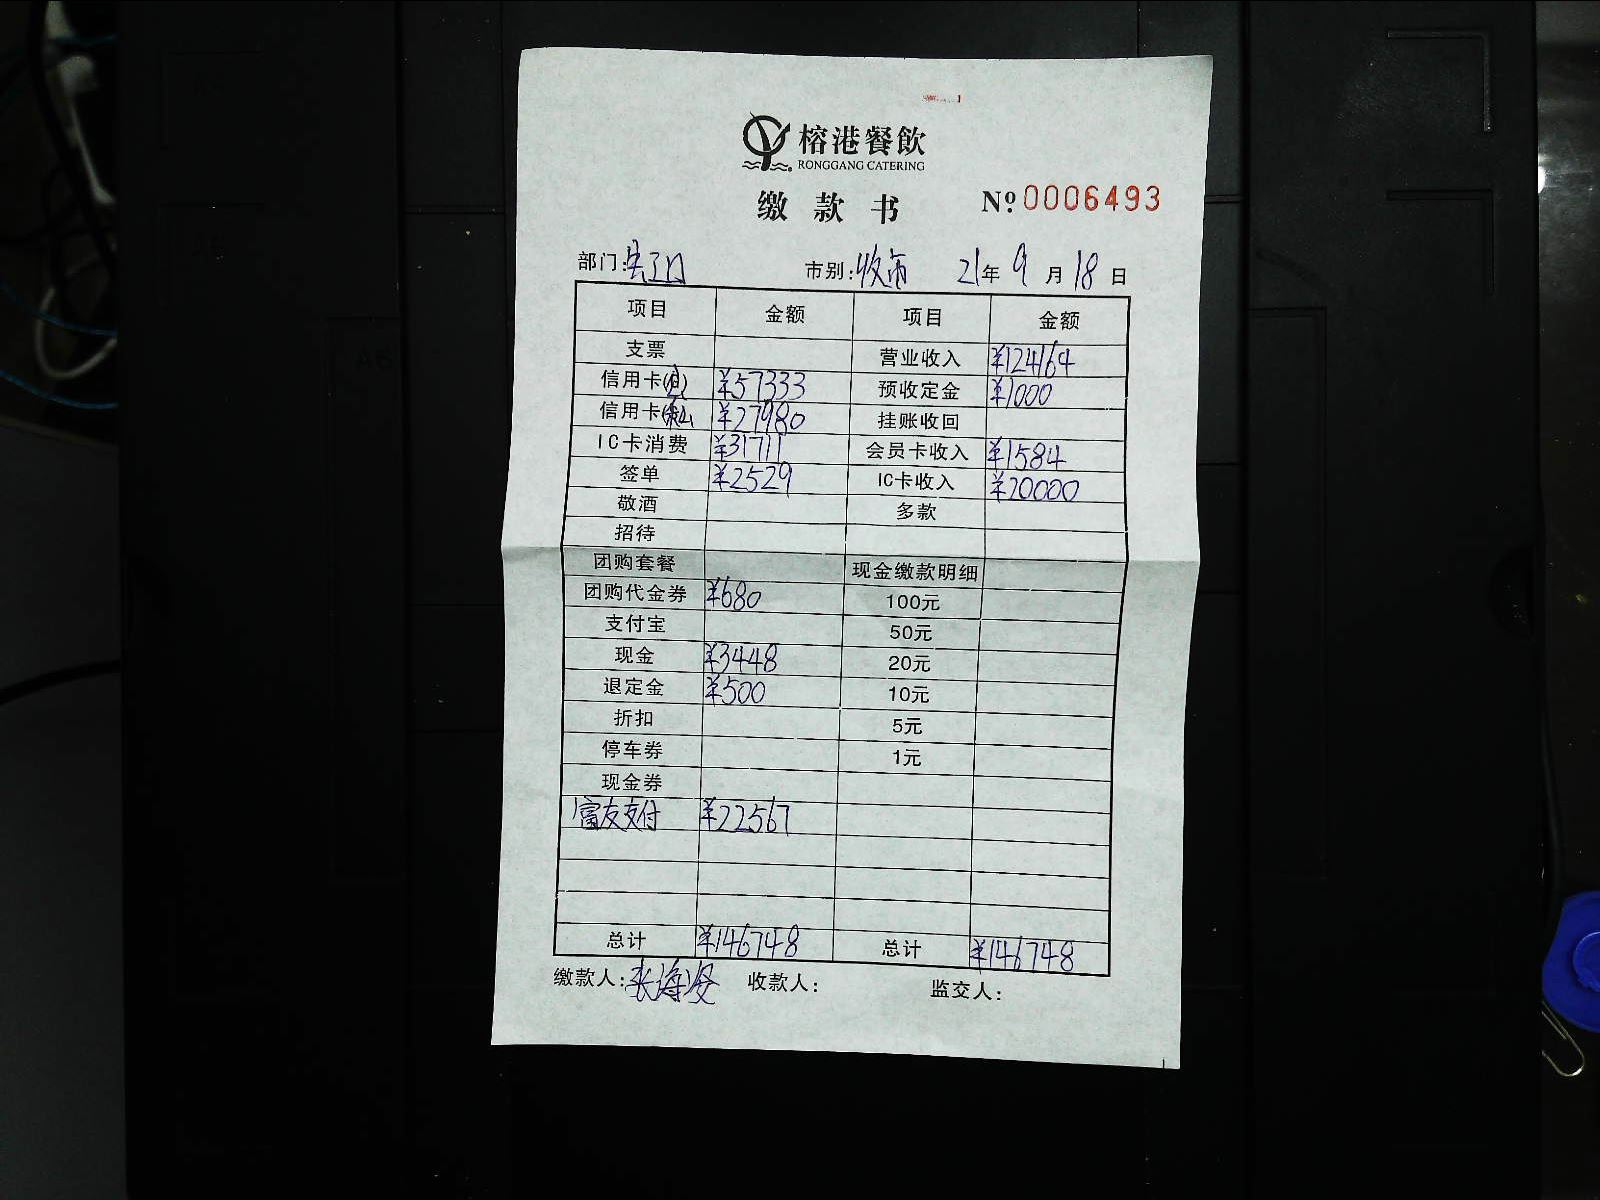 榕港餐飲
RONGGANG CATERING
缴款书 №0006493
部门: 市别:收市 21年9月18日
项目 金额 项目 金额
支票 营业收入 ¥124164
信用卡 ¥57333 预收定金 ¥1000
信用卡 ¥27980 挂账收回
IC卡消费 ¥31711 会员卡收入 ¥1584
签单 ¥2529 IC卡收入 ¥20000
敬酒 多款
招待
团购套餐 现金缴款明细
团购代金券 ¥680 100元
支付宝 50元
现金 ¥3448 20元
退定金 ¥500 10元
折扣 5元
停车券 1元
现金券
富友支付 ¥22567
总计 ¥146748 总计 ¥146748
缴款人:张海 收款人: 监交人: